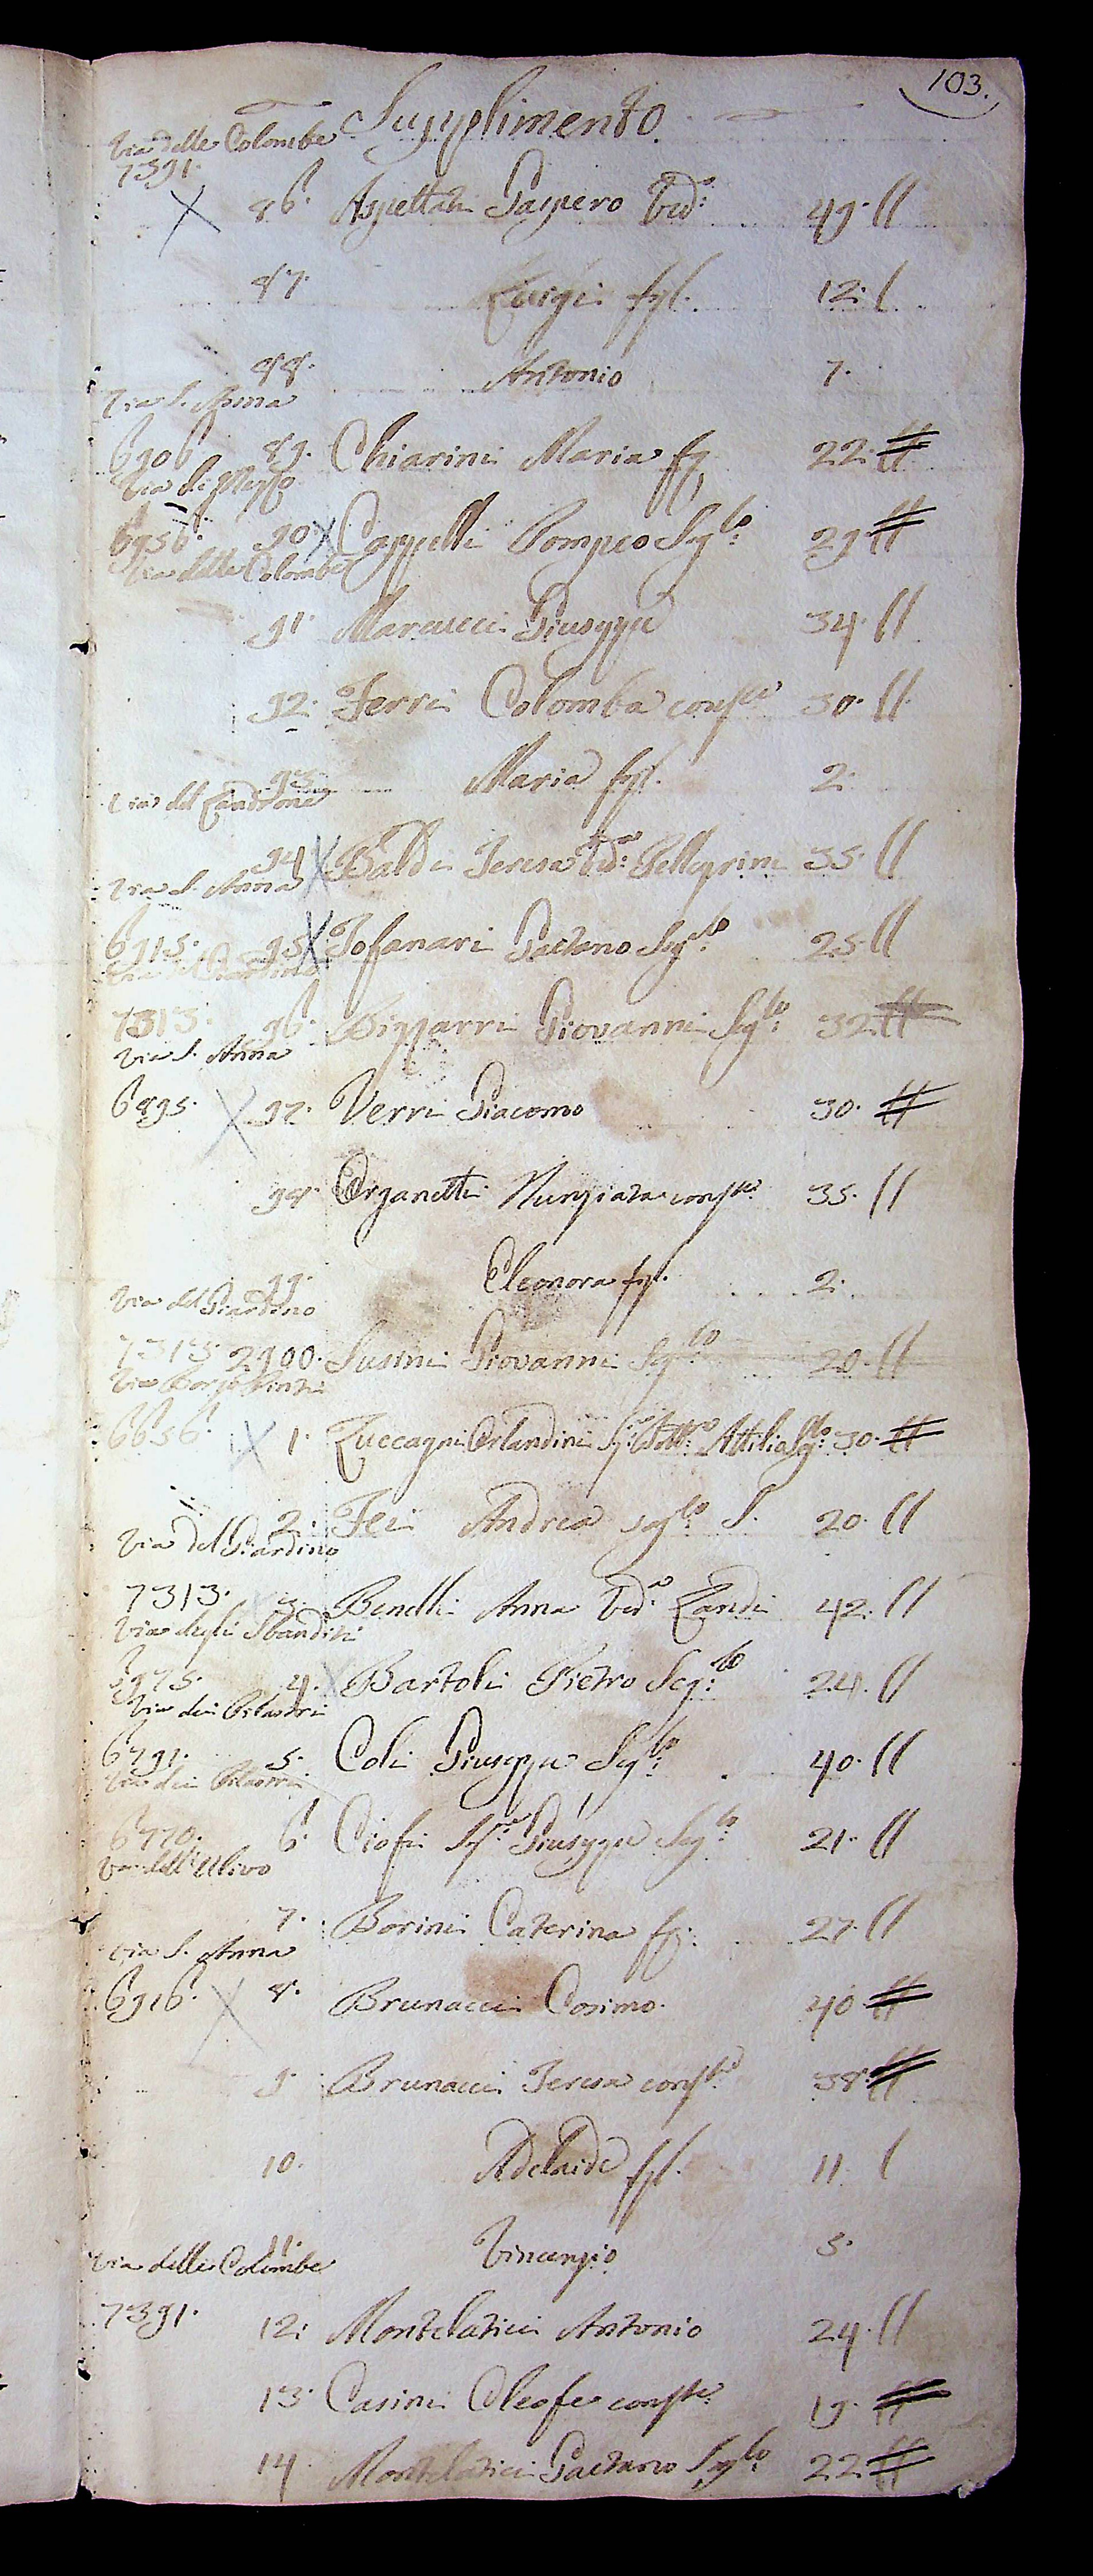 103.
Supplimento
Via delle Colombe
7391.
86. Aspettati Gaspero Ved.º 49.
87. Luigi fgl. 12.
88. Antonio 7.
Via S. Anna
6906 89. Chiarini Maria fg. 22.
Via di Mezzo
6956. 90. Cappelli Pompeo Sg.lo 29.
Via delle Colombe
91. Marcucci Giuseppe 34.
92. Ferri Colomba conste 30.
93. Maria fgl. 2.
Via del
94 Baldi Teresa Ved.a Pellegrini 35.
Via S. Anna
6915. 95 Tofanari Gaetano Sg.lo 25.
Via del Giardino
7313. 96. Bizzarri Giovanni Sg.lo 32.
Via S. Anna
6895. 97. Verri Giacomo 30.
98. Organetti Nunziata conste. 35.
99. Eleonora fgl. 2.
Via del Giardino
7313. 2900. Susini Giovanni Sg.lo 20.
Via Borgo Pinti
6656. 1. Zuccagni Orlandini Sig.re Dott.re Attilio Sg.lo 30.
2. Fei Andrea sg.lo S. 20.
Via del Giardino
7313. 3. Benelli Anna Ved.a Landi 42.
Via degli Sbanditi
4. Bartoli Pietro Scg.lo 24.
Via dei Pilastri
6791. 5. Coli Giuseppe Sg.lo 40.
Via dei Pilastri
6770. 6. Ciofi Sg.re Giuseppe Sg.lo 21.
Via dell'Ulivo
7. Borini Caterina fg. 27.
Via S. Anna
6916. 8. Brunacci Cosimo. 40.
9. Brunacci Teresa conste 38.
10. Adelaide fgl. 11.
11. Vincenzio 5.
Via delle Colombe
7391. 12. Montelatici Antonio 24.
13. Casini Cleofe conste. 19.
14 Montelatici Gaetano Sg.lo 22.